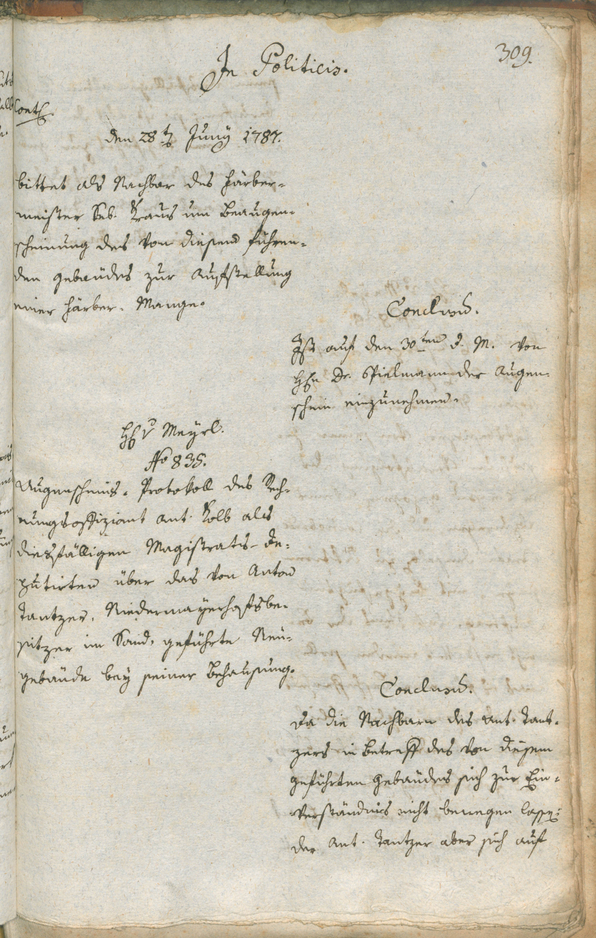 309.
In Politicis.
Cont.
den 28t Juny 1787.
bittet als Nachbar des Färber-
meister Seb. Kraus um Beaugen-
scheinung des von diesem führen-
den gebäudes zur Aufstellung
einer Färber-Mange.
Conclusum.
Ist auf den 30ten d. M. von
HEn Dr. Spielmann der Augen-
schein einzunehmen.
Meyrl.
No 835.
Augenscheins-Protokoll des Rech-
nungsoffiziant Ant. Kolb als
diesfälligen Magistrats-De-
putirten über das von Anton
Tantzer, Niedermayerhofsbe-
sitzer im Sand, geführte Neu-
gebäude bey seiner Behausung.
Conclusum.
Da die Nachbarn des Ant. Tant-
zers in betreff des von diesem
geführten gebäudes sich zur Ein-
verständnis nicht bewegen lassen,
der Ant. Tantzer aber sich auf